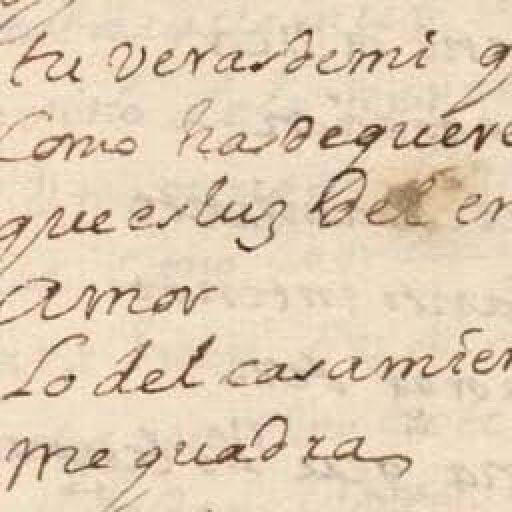 tu veras de mi q
Como has de quere
que es luz del en
Amor
Lo del casamien
me quadra